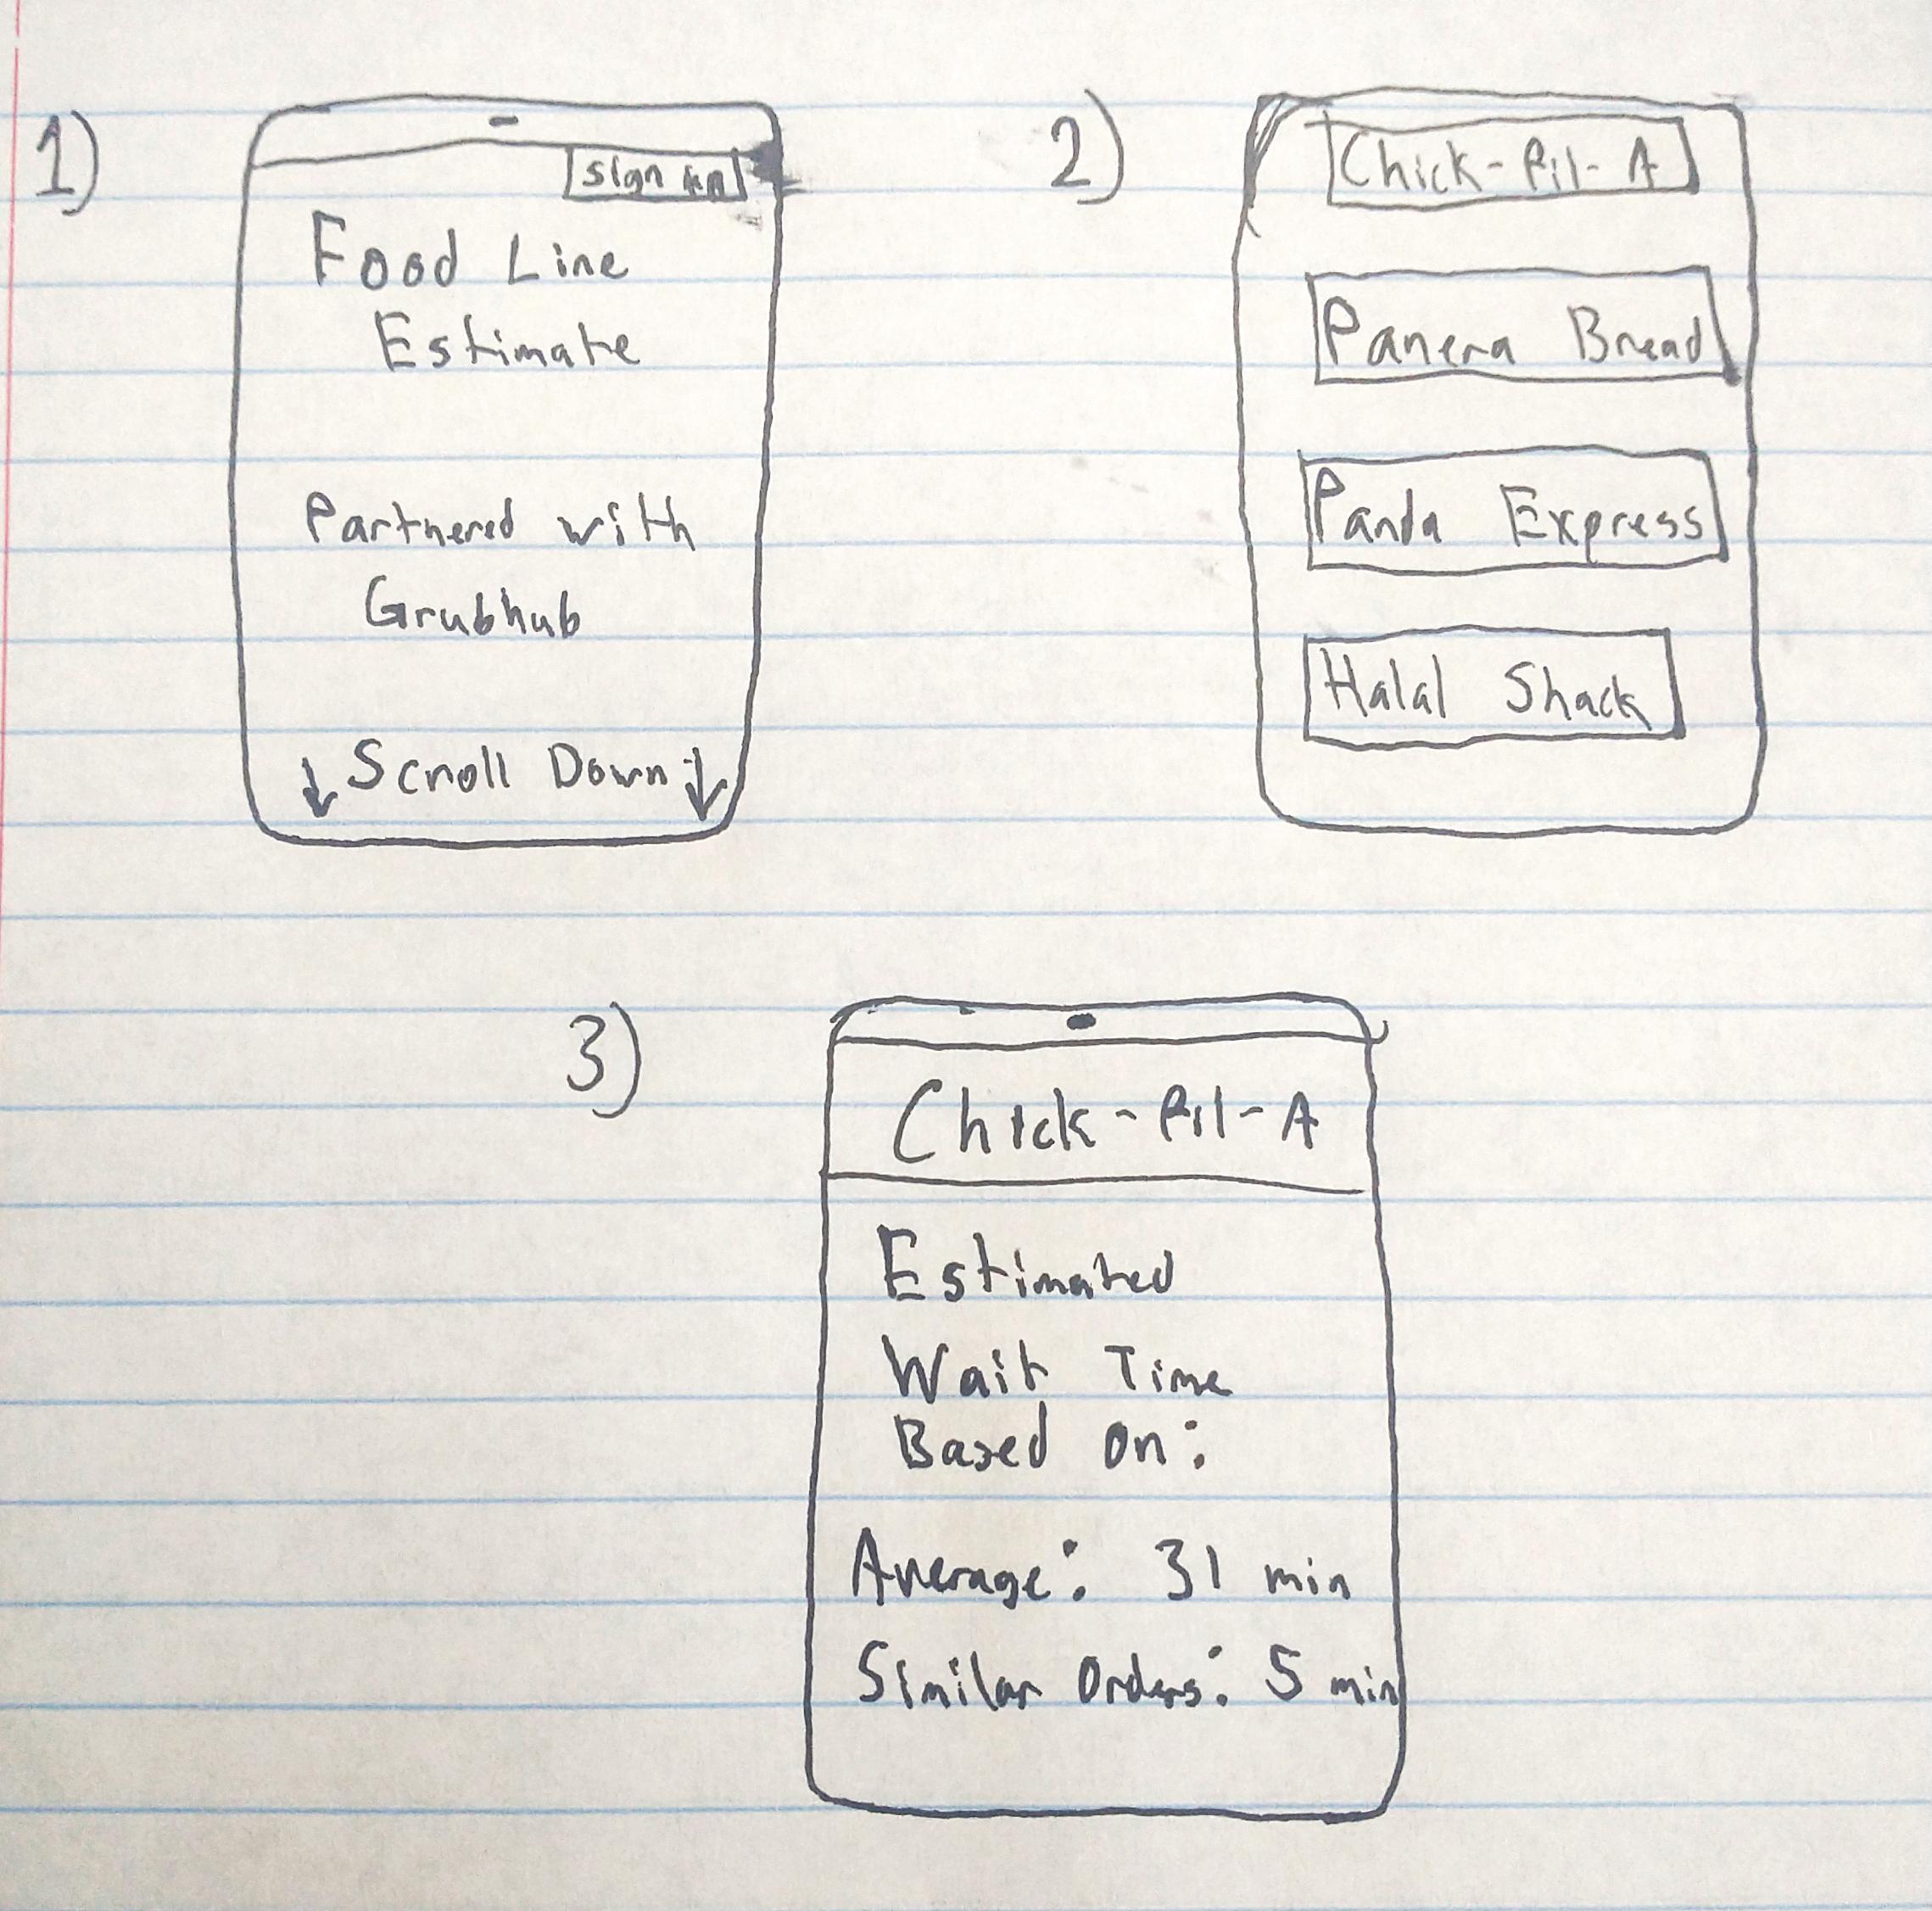 1)
sign in
Food Line
Estimate
Partnered with
Grubhub
↓ Scroll Down ↓
2)
Chick-fil-A
Panera Bread
Panda Express
Halal Shack
3)
Chick-fil-A
Estimated
Wait Time
Based on:
Average: 31 min
Similar Orders: 5 min